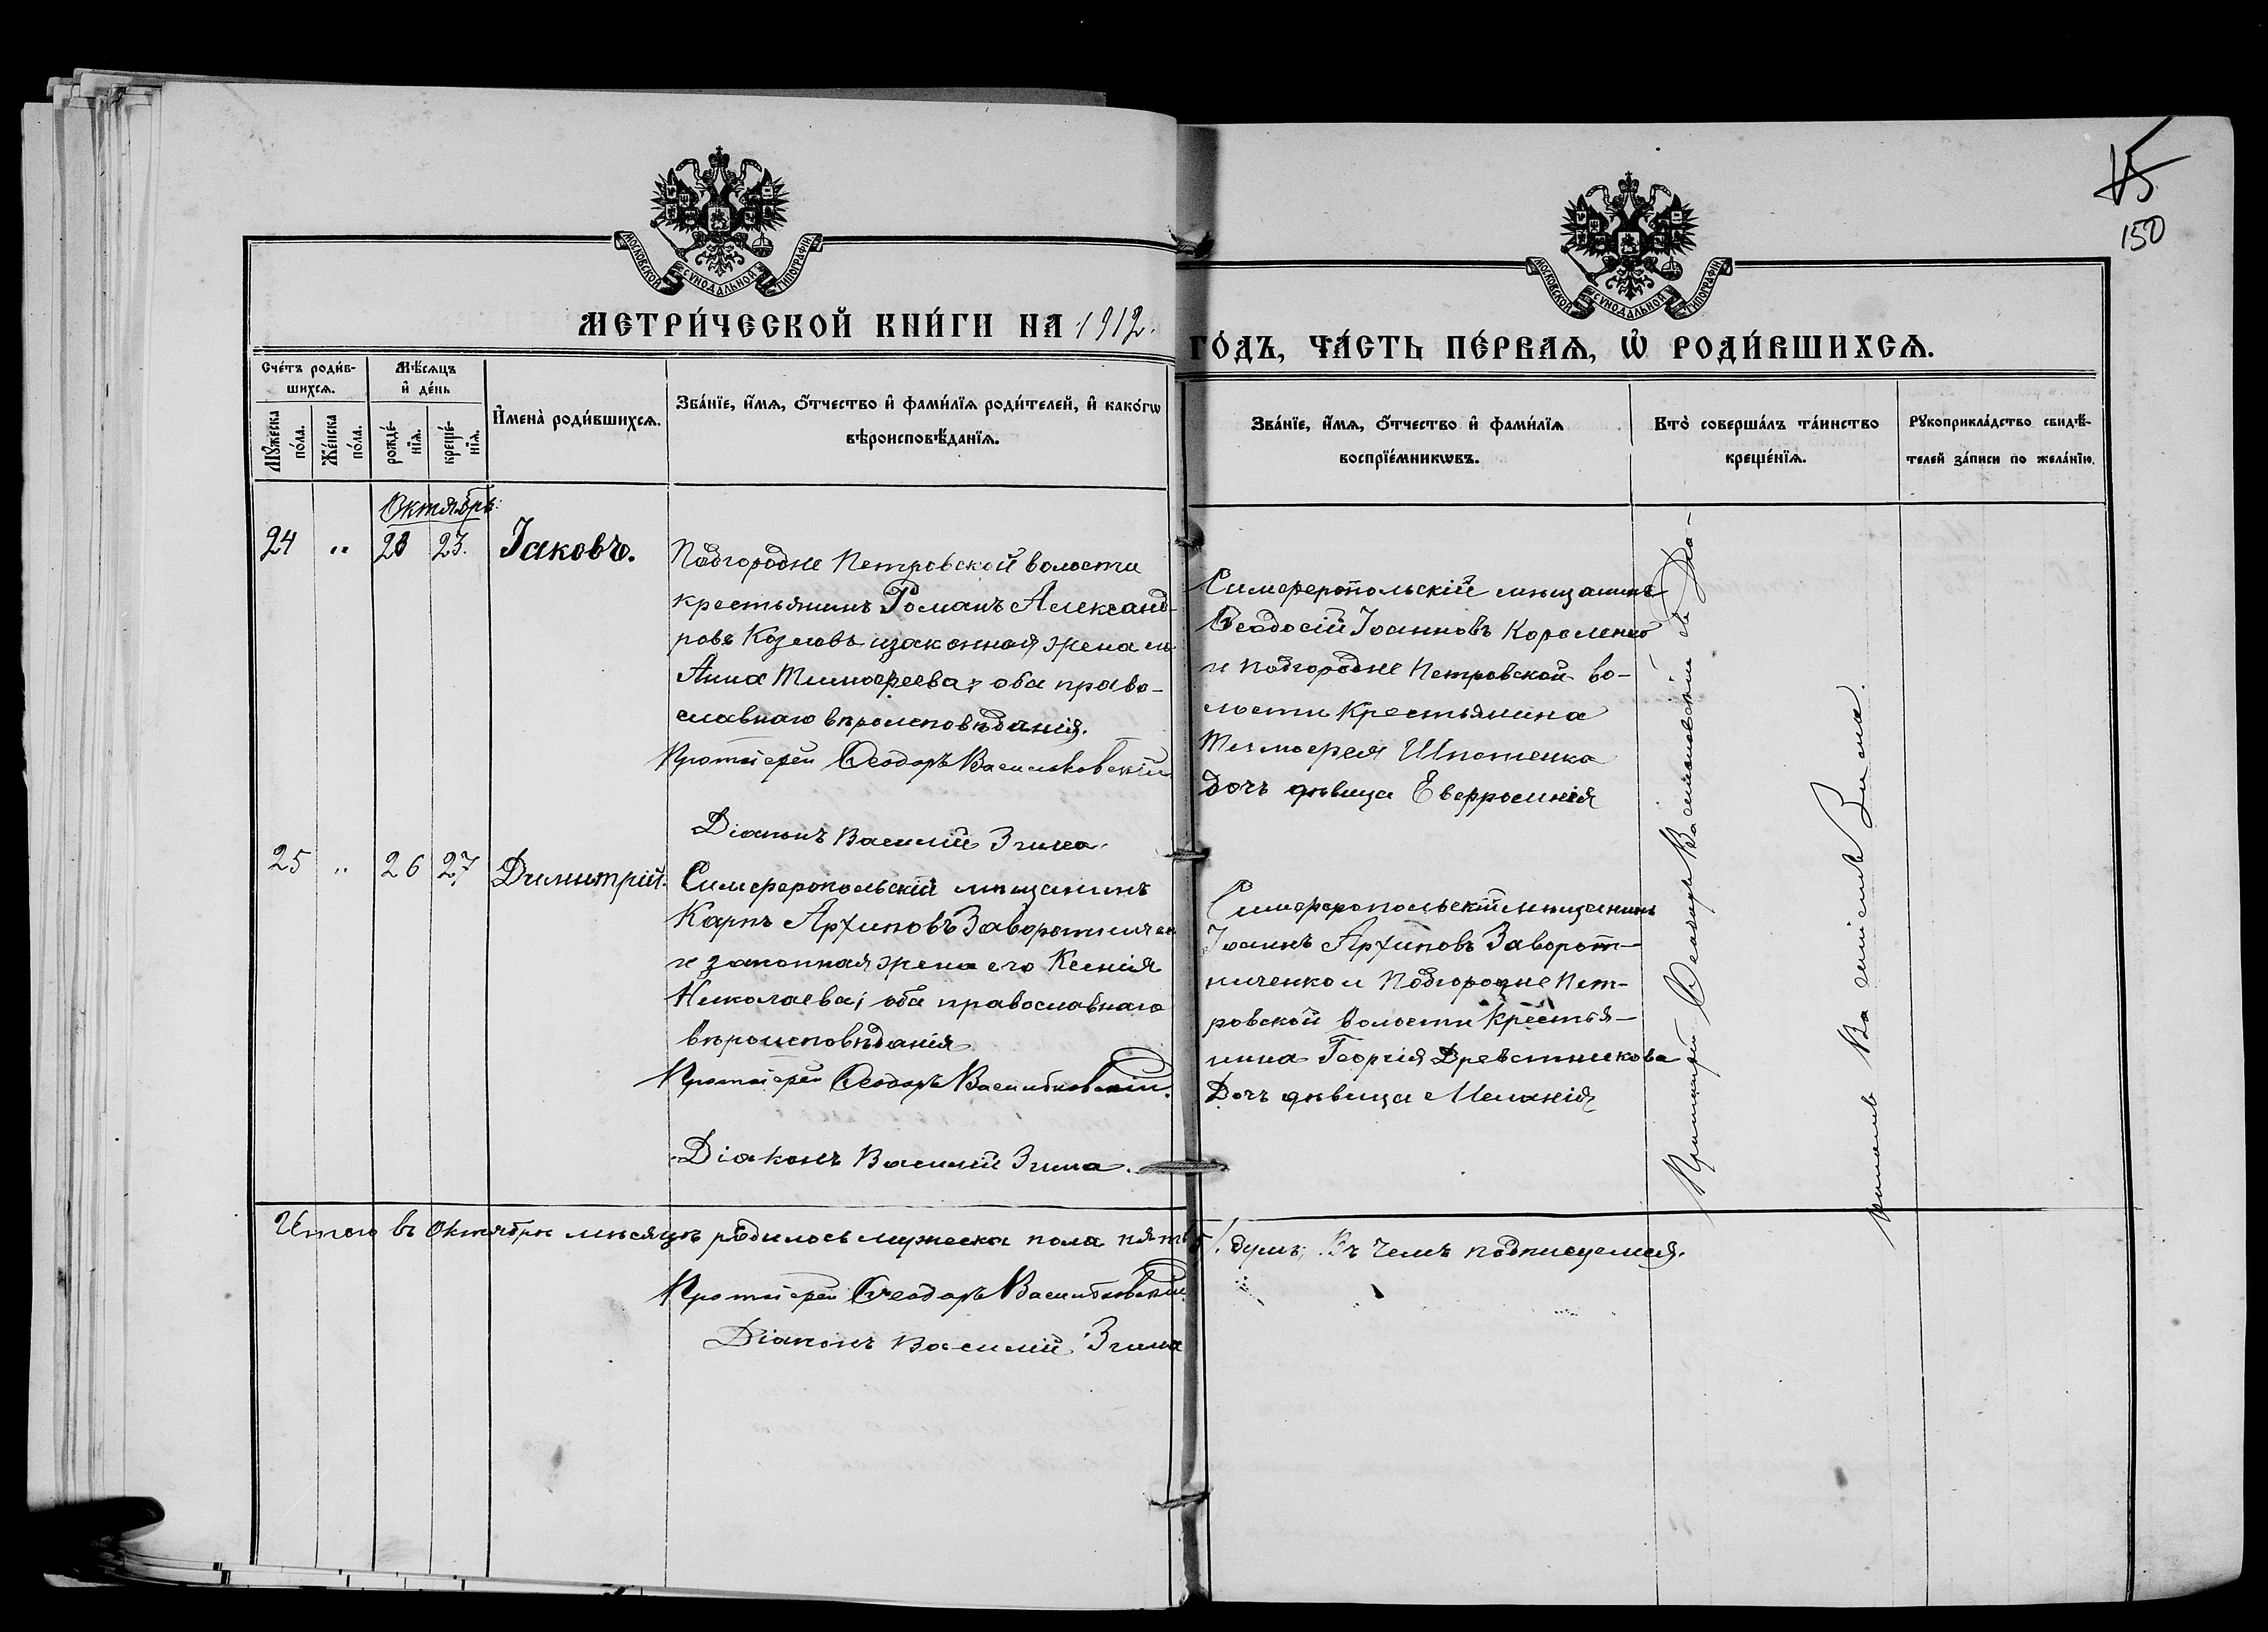 15
150
МОСКОВСКОЙ СѴНОДАЛЬНОЙ ТИПОГРАФІИ
МОСКОВСКОЙ СѴНОДАЛЬНОЙ ТИПОГРАФІИ
МЕТРИ́ЧЕСКОЙ КНИ́ГИ НА 1912.
ГО́ДЪ, ЧА́СТЬ ПЕ́РВАѦ, Ѡ҆ РОДИ́ВШИХСѦ.
Сче́тъ роди́в-
шихсѧ.
Мѣ́сѧцъ
и҆ де́нь
Мꙋ́жеска
по́ла.
Же́нска
по́ла.
рожде́-
нїѧ.
креще́-
нїѧ.
И҆мена̀ роди́вшихсѧ.
Зва́нїе, и҆́мѧ, ѻ҆́тчество и҆ фами́лїѧ роди́телей, и҆ како́гѡ
вѣроисповѣ́данїѧ.
Зва́нїе, и҆́мѧ, ѻ҆́тчество и҆ фами́лїѧ
воспрїе́мникѡвъ.
Кто̀ соверша́лъ та́инство
креще́нїѧ.
Рꙋкоприкла́дство свидѣ́-
телей за́писи по жела́нїю.
Октябрь:
24 " 23 23. Іаковъ.
Подгородне Петровской волости
крестьянинъ Романъ Александ-
ровъ Козловъ и законная жена его
Анна Тимофеева; оба право-
славнаго вѣроисповѣданія.
Протоіерей Ѳеодоръ Васильковскій
Діаконъ Василій Зима.
Симферопольскій мѣщанинъ
Ѳеодосій Іоанновъ Короленко
и Подгородне Петровской во-
лости Крестьянина
Тимофея Ипатенка
дочь дѣвица Евфросинія
25 " 26 27 Димитрій.
Симферопольскій мѣщанинъ
Карпъ Архиповъ Заворотниченко
и законная жена его Ксенія
Николаева; оба православнаго
вѣроисповѣданія
Протоіерей Ѳеодоръ Васильковскій.
Діаконъ Василій Зима.
Симферопольскій мѣщанинъ
Іоаннъ Архиповъ Заворот-
ниченко и Подгородне Пет-
ровской волости Крестья-
нина Георгія Древетникова
Дочь дѣвица Меланія
Протоіерей Ѳеодоръ Васильковскій съ Діа-
кономъ Василіемъ Зимою.
Итого въ Октябрѣ мѣсяцѣ родилось мужеска пола пять /5/. душъ; Въ чемъ подписуемся.
Протоіерей Ѳеодоръ Васильковскій.
Діаконъ Василій Зима